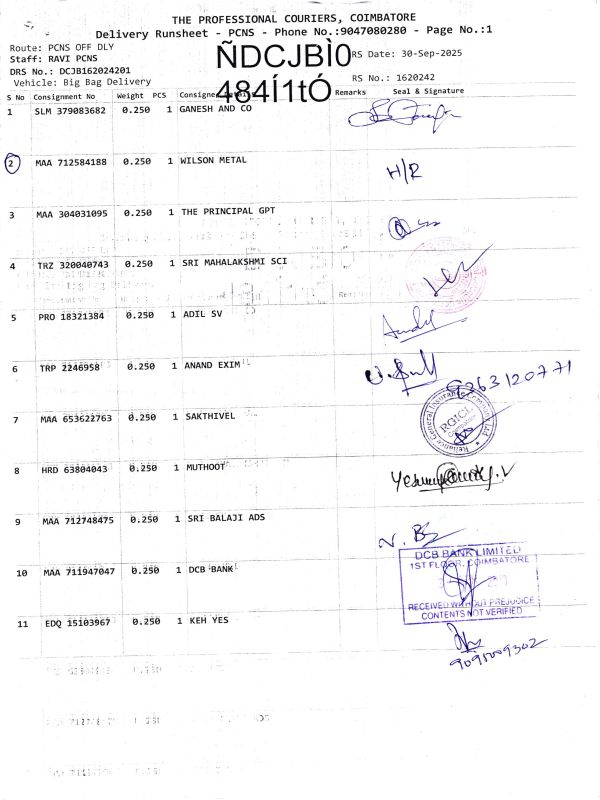 THE PROFESSIONAL COURIERS, COIMBATORE
Delivery Runsheet - PCNS - Phone No.:9047080280 - Page No.:1
Route: PCNS OFF DLY
Staff: RAVI PCNS
DRS No.: DCJB162024201
Vehicle: Big Bag Delivery
ÑDCJBÌ0
484Í1tÓ
RS Date: 30-Sep-2025
RS No.: 1620242
S No Consignment No Weight PCS Consignee Details Remarks Seal & Signature
1 SLM 379083682 0.250 1 GANESH AND CO
2 MAA 712584188 0.250 1 WILSON METAL H/R
3 MAA 304031095 0.250 1 THE PRINCIPAL GPT
4 TRZ 320040743 0.250 1 SRI MAHALAKSHMI SCI
5 PRO 18321384 0.250 1 ADIL SV
6 TRP 2246958 0.250 1 ANAND EXIM
9363120771
7 MAA 653622763 0.250 1 SAKTHIVEL
Reliance General Insurance Company Ltd
RGICL
8 HRD 63804043 0.250 1 MUTHOOT
9 MAA 712748475 0.250 1 SRI BALAJI ADS
10 MAA 711947047 0.250 1 DCB BANK
DCB BANK LIMITED
1ST FLOOR, COIMBATORE
RECEIVED WITHOUT PREJUDICE
CONTENTS NOT VERIFIED
11 EDQ 15103967 0.250 1 KEH YES